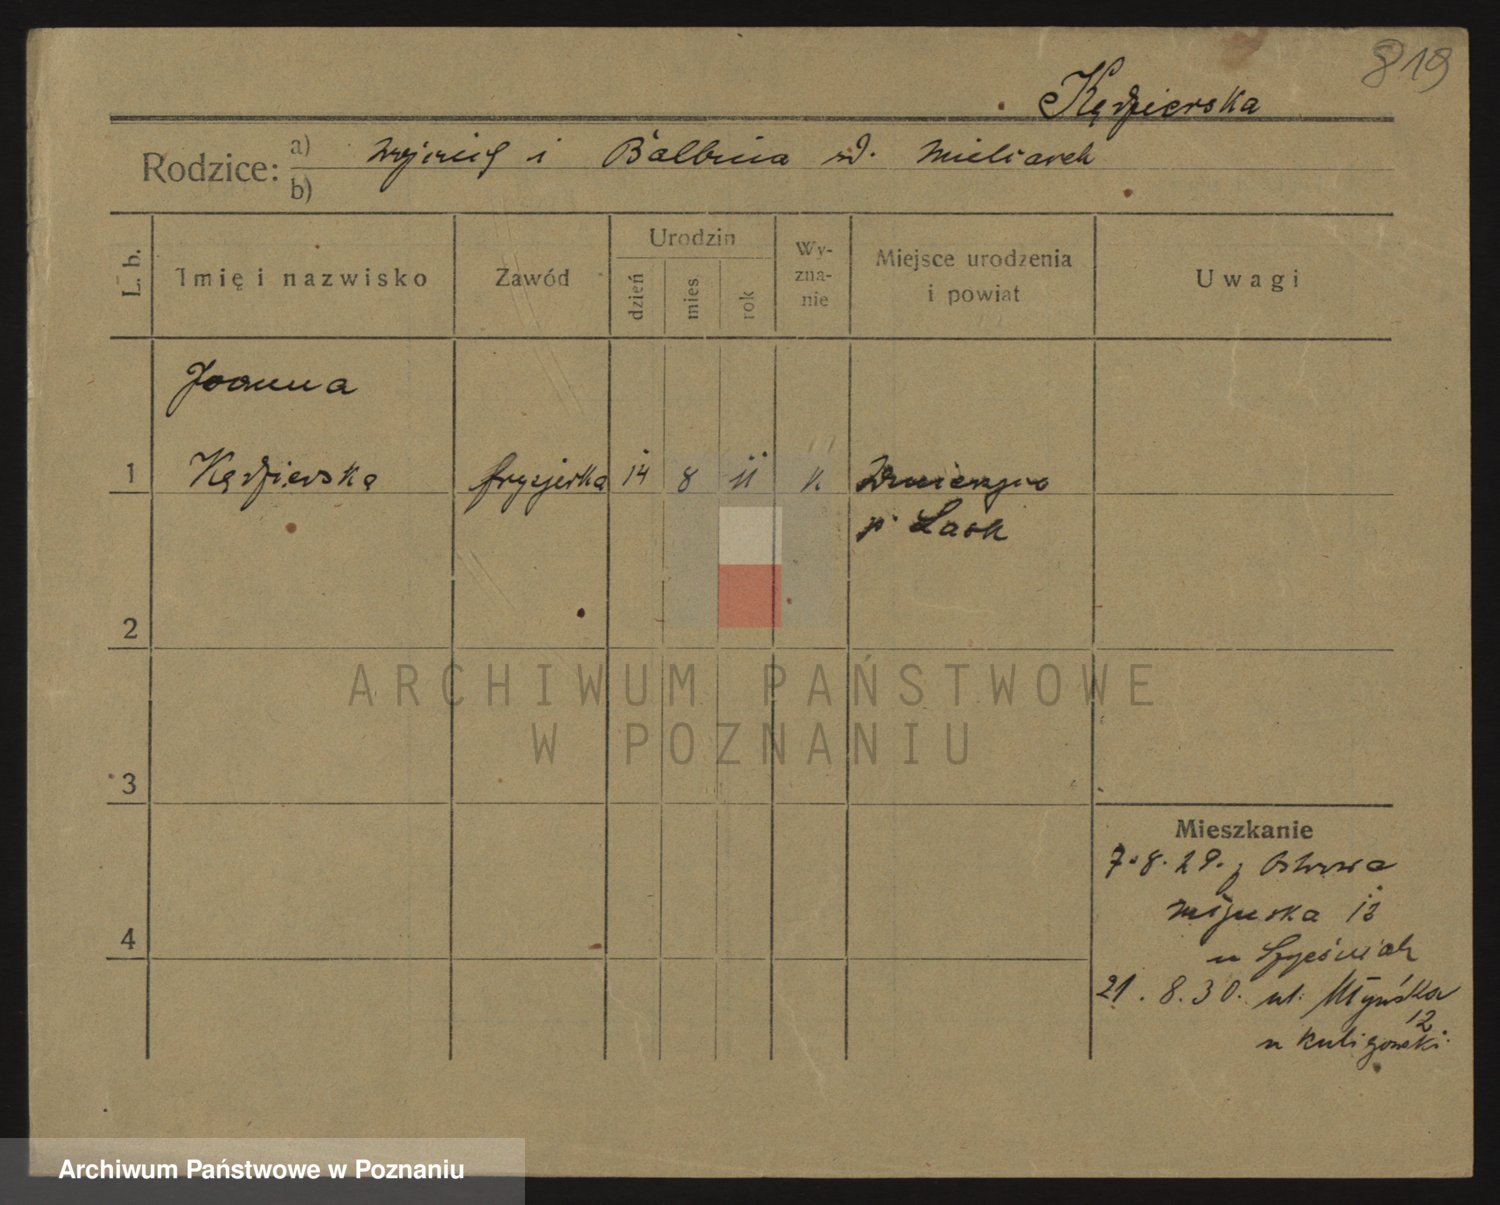 819
Kędzierska
Rodzice: a) Wojciech i Balbina zd. Mielcarek
b)
L. b. Imię i nazwisko Zawód Urodzin dzień mies. rok Wy-zna-nie Miejsce urodzenia i powiat Uwagi
Joanna
1 Kędzierska fryzjerka 14 8 11 k
p. Łask
2
3
4
ARCHIWUM PAŃSTWOWE
W POZNANIU
Mieszkanie
7.8.29. z Ostrowa
Młyńska 12
u
21.8.30. ul. Młyńska
12
u Kuligowski
Archiwum Państwowe w Poznaniu